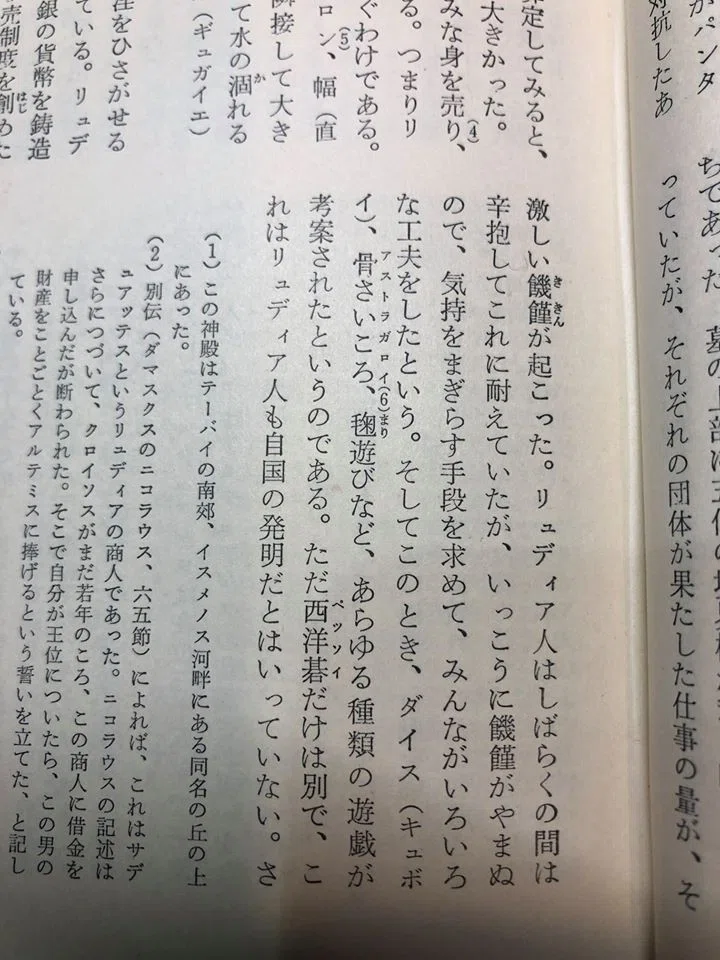 がパンタ
対抗したあ
ちであった 墓の上部は五個の
っていたが、それぞれの団体が果たした仕事の量が、そ
定してみると、
大きかった。
みな身を売り、(4)
る。つまりリ
ぐわけである。
ロン、(5)幅（直
隣接して大き
て水の涸れる
（ギュガイエ）
をひさがせる
ている。リュデ
銀の貨幣を鋳造
売制度を創めた
激しい饑饉が起こった。リュディア人はしばらくの間は
辛抱してこれに耐えていたが、いっこうに饑饉がやまぬ
ので、気持をまぎらす手段を求めて、みんながいろいろ
な工夫をしたという。そしてこのとき、ダイス（キュボ
イ）、骨さいころ、(6)毬遊びなど、あらゆる種類の遊戯が
考案されたというのである。ただ西洋碁だけは別で、こ
れはリュディア人も自国の発明だとはいっていない。さ
（1）この神殿はテーバイの南郊、イスメノス河畔にある同名の丘の上
にあった。
（2）別伝（ダマスクスのニコラウス、六五節）によれば、これはサデ
ュアッテスというリュディアの商人であった。ニコラウスの記述は
さらにつづいて、クロイソスがまだ若年のころ、この商人に借金を
申し込んだが断わられた。そこで自分が王位についたら、この男の
財産をことごとくアルテミスに捧げるという誓いを立てた、と記し
ている。